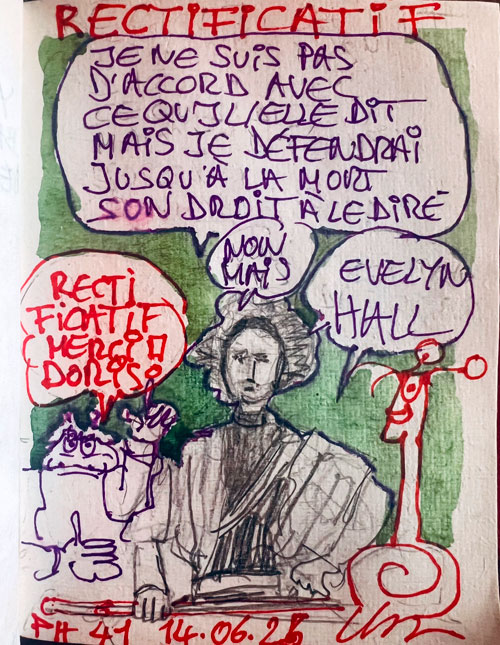 RECTIFICATIF
JE NE SUIS PAS
D'ACCORD AVEC
CE QU'IL/ELLE DIT
MAIS JE DÉFENDRAI
JUSQU'À LA MORT
SON DROIT À LE DIRE
NON
MAIS
EVELYN
HALL
RECTI
FICATIF
MERCI
DORIS
PH 41 14.06.25